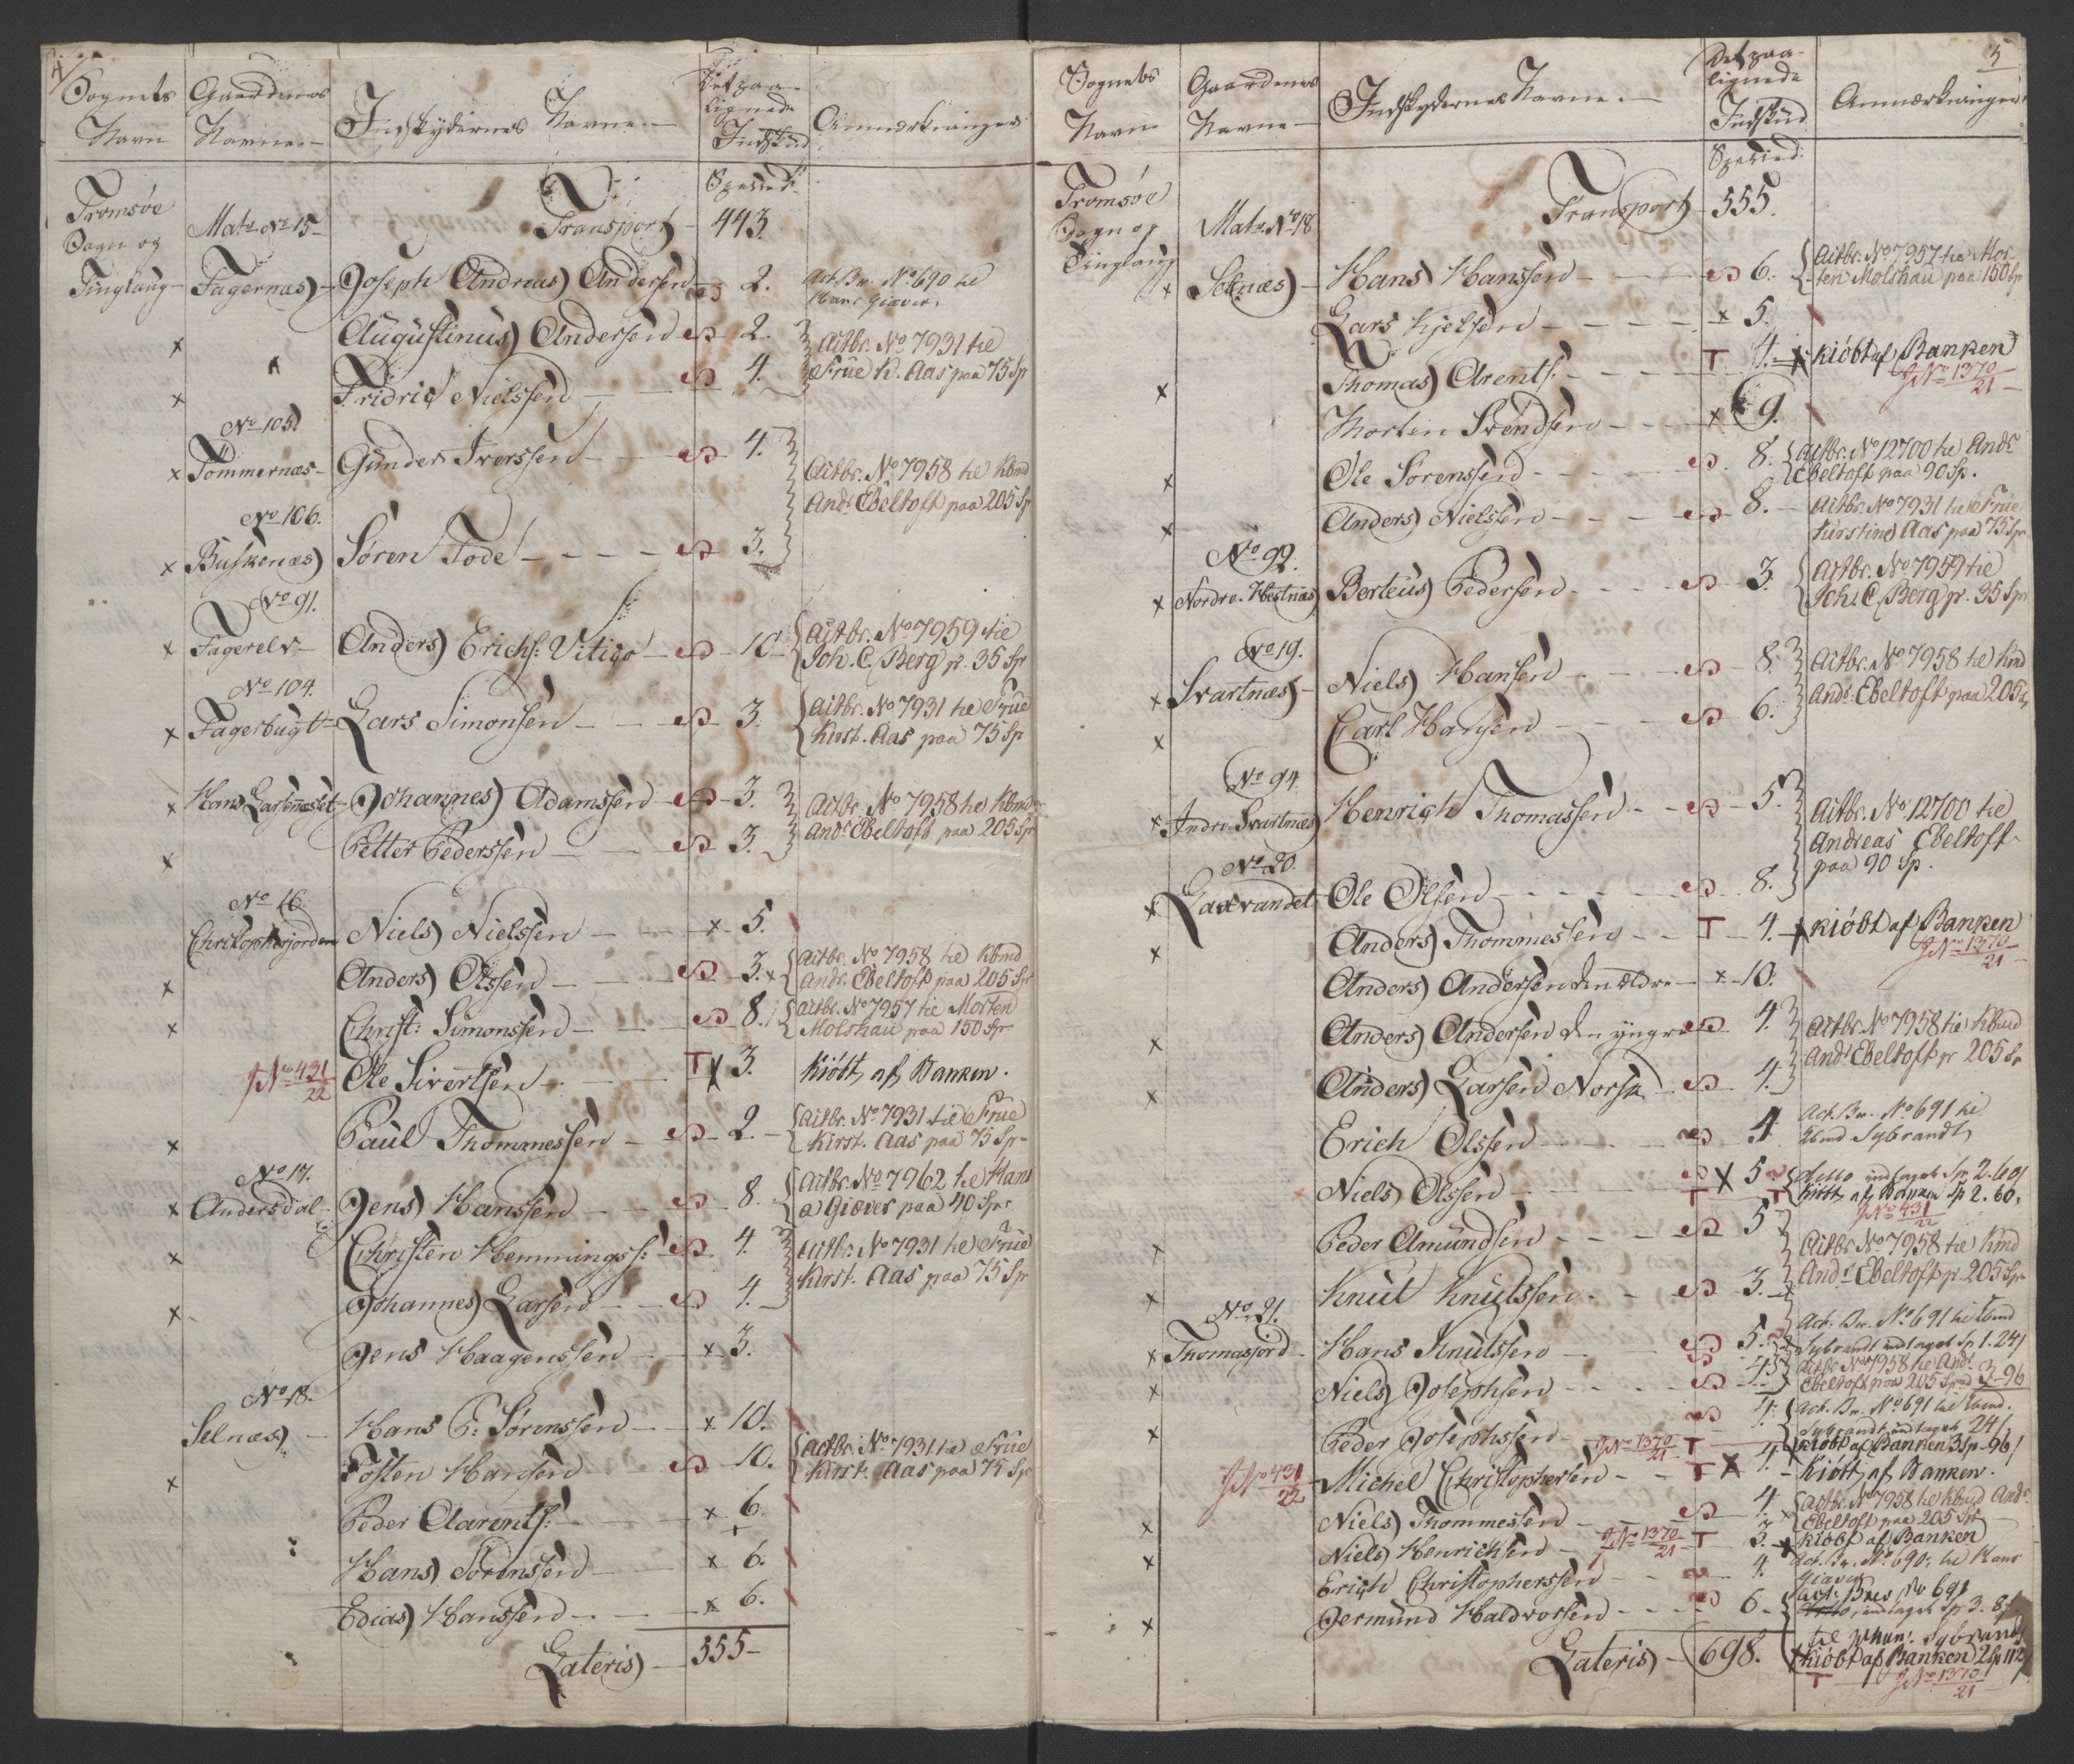 4
Sognets Navn
Gaardenes Navne
Indskydernes Navne
Det paalignede Indskud
Anmærkninger
Speciedr
Tromsøe Sogn og Tinglaug
Matr No 15
Transport 443.
Fagernæs Joseph Andreas Andersen 2. Act. Br. No 690 til Hans Giæver
x Augustinus Andersen 2. Actbr. No 7931 til
x Fridric Nielssen 4. Frue K. Aas paa 75 Sp
No 105
x Tommernæs Gunder Iverssen 4. Actbr. No 7958 til Kbmd
Andr Ebeltoft paa 205 Sp
No 106.
x Buskenæs Søren Tode 3.
No 91.
x Fagerelv Anders Erichs: Vitigo 10 Actbr. No 7959 til
Joh. C. Berg p. 35 Sp
No 104.
x Fagerbugt Lars Simonsen 3. Actbr. No 7931 til Frue
Kirst. Aas paa 75 Sp
x Hans Larsnæsset Johannes Adamssen 3. Actbr. No 7958 til Kbmd
x Petter Pederssen 3. Andr Ebeltoft paa 205 Sp
No 16.
Christopherjorden Niels Nielssen x 5.
x Anders Olssen 3. x Actbr. No 7958 til Kbmd
Andr. Ebeltoft paa 205 Sp
x Christ: Simonssen 8. Actbr. No 7957 til Morten
Molshau paa 150 Sp
JNo 431/22 Ole Sivertsen T x 3. Kiøbt af Banken.
x Paul Thommessen 2. Actbr. No 7931 til Frue
Kirst. Aas paa 75 Sp
No 17.
x Andersdal Jens Hanssen 8. Actbr. No 7962 til Hans
a Giæver paa 40 Sp
x Christen Hemmingss: 4. Actbr. No 7931 til Frue
x Johannes Larsen 4. Kirst. Aas paa 75 Sp
Jens Haagenssen x 3.
No 18.
Selnæs Hans P: Sørenssen x 10.
x Tosten Hansen 10. Actbr. No 7931 til Frue
Kirst. Aas paa 75 Sp
Peder Aarents: x 6.
Hans Sørenssen x 6.
Edias Hanssen x 6.
Lateris 555
5
Sognets Navn
Gaardenes Navne
Indskydernes Navne
Det paalignede Indskud
Anmærkninger
Specied:
Tromsøe Sogn og Tinglaug
Matr. No 18
Transport 555.
x Selnæs Hans Hanssen 6. Actbr. No 7957 til Mor-
ten Molshau paa 150 Sp
Lars Kjelsen x 5.
x Thomas Arents: T 4. x Kiøbt af Banken
JNo 1370/21
Morten Svendsen x 9.
x Ole Sørenssen 8. Actbr. No 12700 til Andr
Ebeltoft paa 90 Sp.
x Anders Nielssen 8. Actbr. No 7931 til Frue
Kirstine Aas paa 75 Sp
No 92.
x Nordre Hestnæs Berteus Pedersen 3. Actbr. No 7959 til
Joh. C. Berg p. 35 Sp
No 19.
x Svartnæs Niels Hansen 8. Actbr. No 7958 til Kmd
x Carl Hansen 6. Andr. Ebeltoft paa 205 Sp
No 94
x Indre Svartnæs Henrich Thomassen 5. Actbr. No 12700 til
Andreas Ebeltoft
paa 90 Sp.
No 20.
x Laxvandet Ole Olsen 8.
x Anders Thommessen T 4. x Kiøbt af Banken
JNo 1370/21
Anders Andersen den ældre x 10.
x Anders Andersen den yngre 4. Actbr. No 7958 til Kbmd
x Anders Larsen Norsk 4. Andr Ebeltoft p 205 Sp
Erich Olssen 4 Act. Br. No 691 til
Kbmd Sybrandt
Niels Olssen x 5 ditto indtaget Sp 2.60
T T Kiøbt af Banken Sp 2.60.
JNo 431/22
x Peder Amundsen 5 Actbr No 7958 til Kmd
x Knut Knutssen 3. Andr Ebeltoft p 205 Sp
No 21.
x Thomasjord Hans Knutssen 5. Act. Br. No 691 til Kbmd
Sybrandt indtaget Sp 1.24
x Niels Josephsen 4. Actbr No 7958 til Andr
Ebeltoft paa 205 Sp 3-96
x Peder Josephssen 4. Act. Br. No 691 til Kbmd.
Sybrandt indtaget 24
JNo 1370/21 T Kiøbt af Banken 3 Sp 96
JNo 431/22 Michel Christophersen T x 4. Kiøbt af Banken.
x Niels Thommessen 4 Actbr No 7958 til Kbmd Andr
Ebeltoft paa 205 Sp
x Niels Henrichsen JNo 1370/21 T 3. x Kiøbt af Banken
Erich Christopherssen 4. Act. Br. No 690 til Hans
Giæver
x Germund Haldvorsen 6. act: Brev No 691
indtaget Sp 3.8
til Johan. Sybrandt
Lateris 698. Kiøbt af Banken 2 Sp 112
T JNo 1370/21